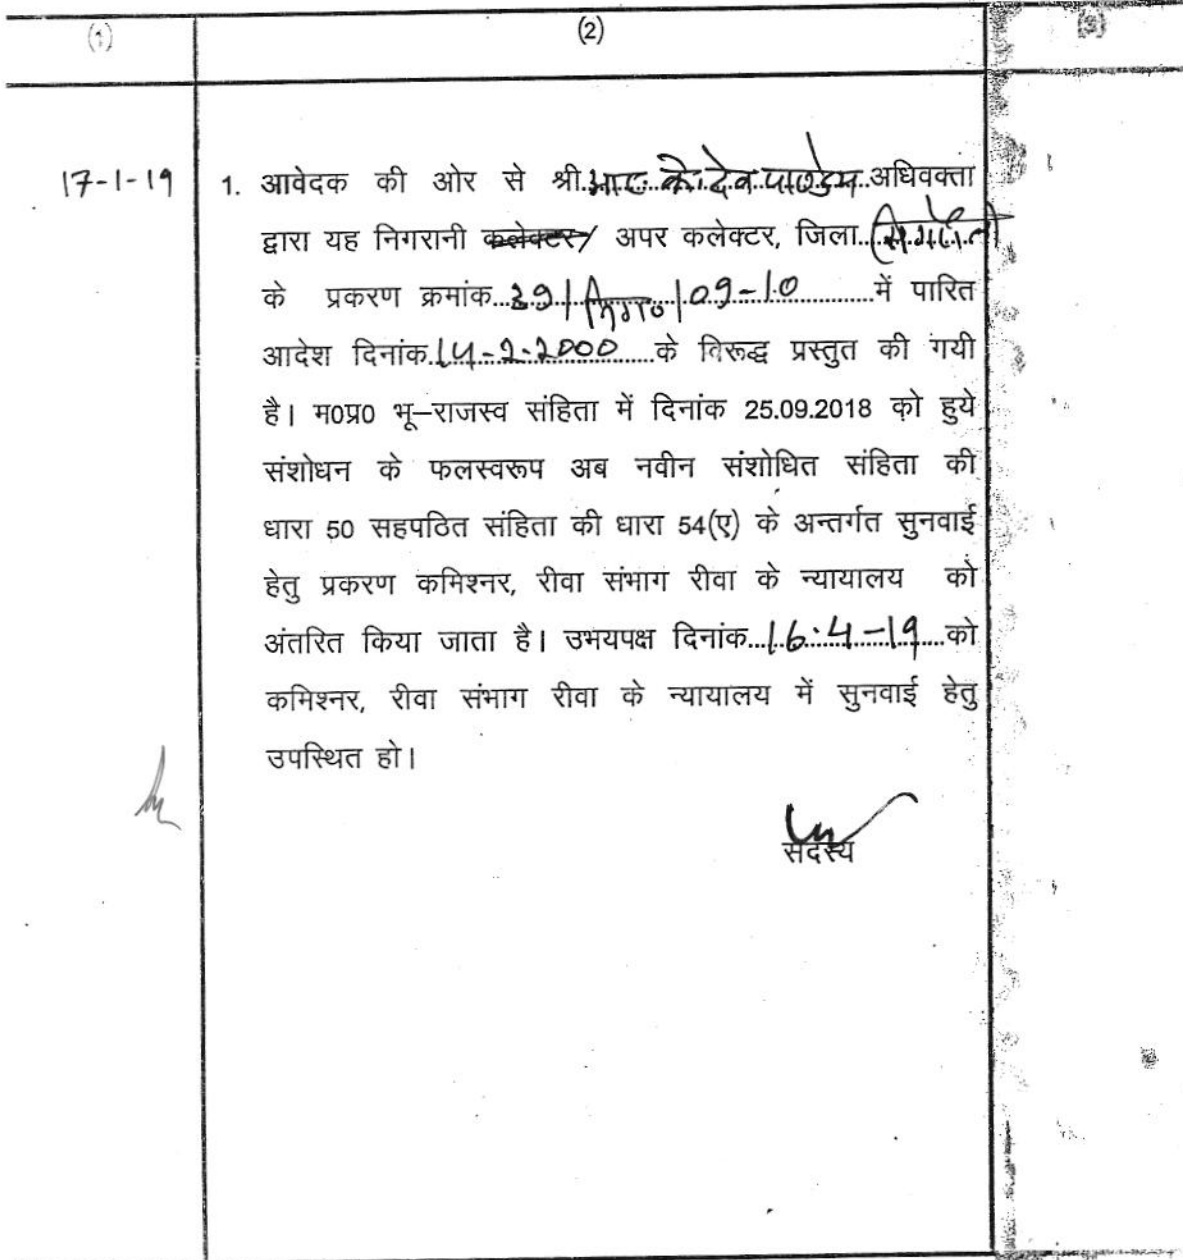 (1) (2) (3)
17-1-19 1. आवेदक की ओर से श्री आर. के. देव पाण्डेय अधिवक्ता
द्वारा यह निगरानी कलेक्टर/ अपर कलेक्टर, जिला
के प्रकरण क्रमांक 39/निग0/09-10 में पारित
आदेश दिनांक 14-2-2000 के विरूद्ध प्रस्तुत की गयी
है। म0प्र0 भू–राजस्व संहिता में दिनांक 25.09.2018 को हुये
संशोधन के फलस्वरूप अब नवीन संशोधित संहिता की
धारा 50 सहपठित संहिता की धारा 54(ए) के अन्तर्गत सुनवाई
हेतु प्रकरण कमिश्नर, रीवा संभाग रीवा के न्यायालय को
अंतरित किया जाता है। उभयपक्ष दिनांक 16.4-19 को
कमिश्नर, रीवा संभाग रीवा के न्यायालय में सुनवाई हेतु
उपस्थित हो।
सदस्य